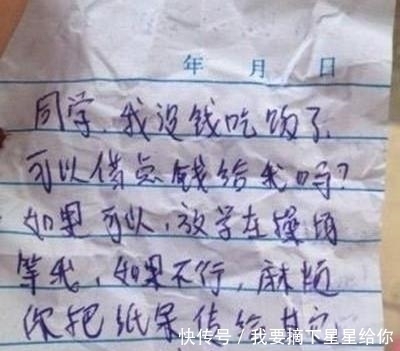 年 月 日
同学,我没钱吃饭了
可以借点钱给我吗?
如果可以,放学在操场
等我,如果不行,麻烦
你把纸条传给其它
快传号/我要摘下星星给你